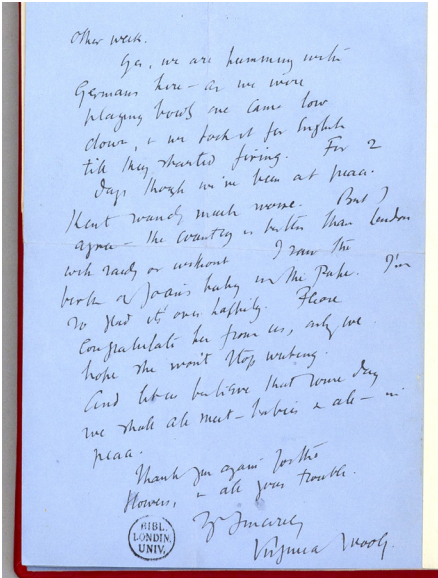 other week.
Yes, we are humming with
Germans here – as we were
playing bowls one came low
down, & we took it for English
till they started firing. For 2
days though we've been at peace.
Kent sounds much worse. But I
agree – the country is better than London
with raids or without I saw the
birth of Joan's baby in the Paper. I'm
so glad its over happily. Please
congratulate her from us, only we
hope she won't stop writing.
And let us believe that some day
we shall all meet – babies & all – in
peace.
Thank you again for the
flowers, & all your trouble.
Yr Sincerely
Virginia Woolf
BIBL.
LONDIN.
UNIV.